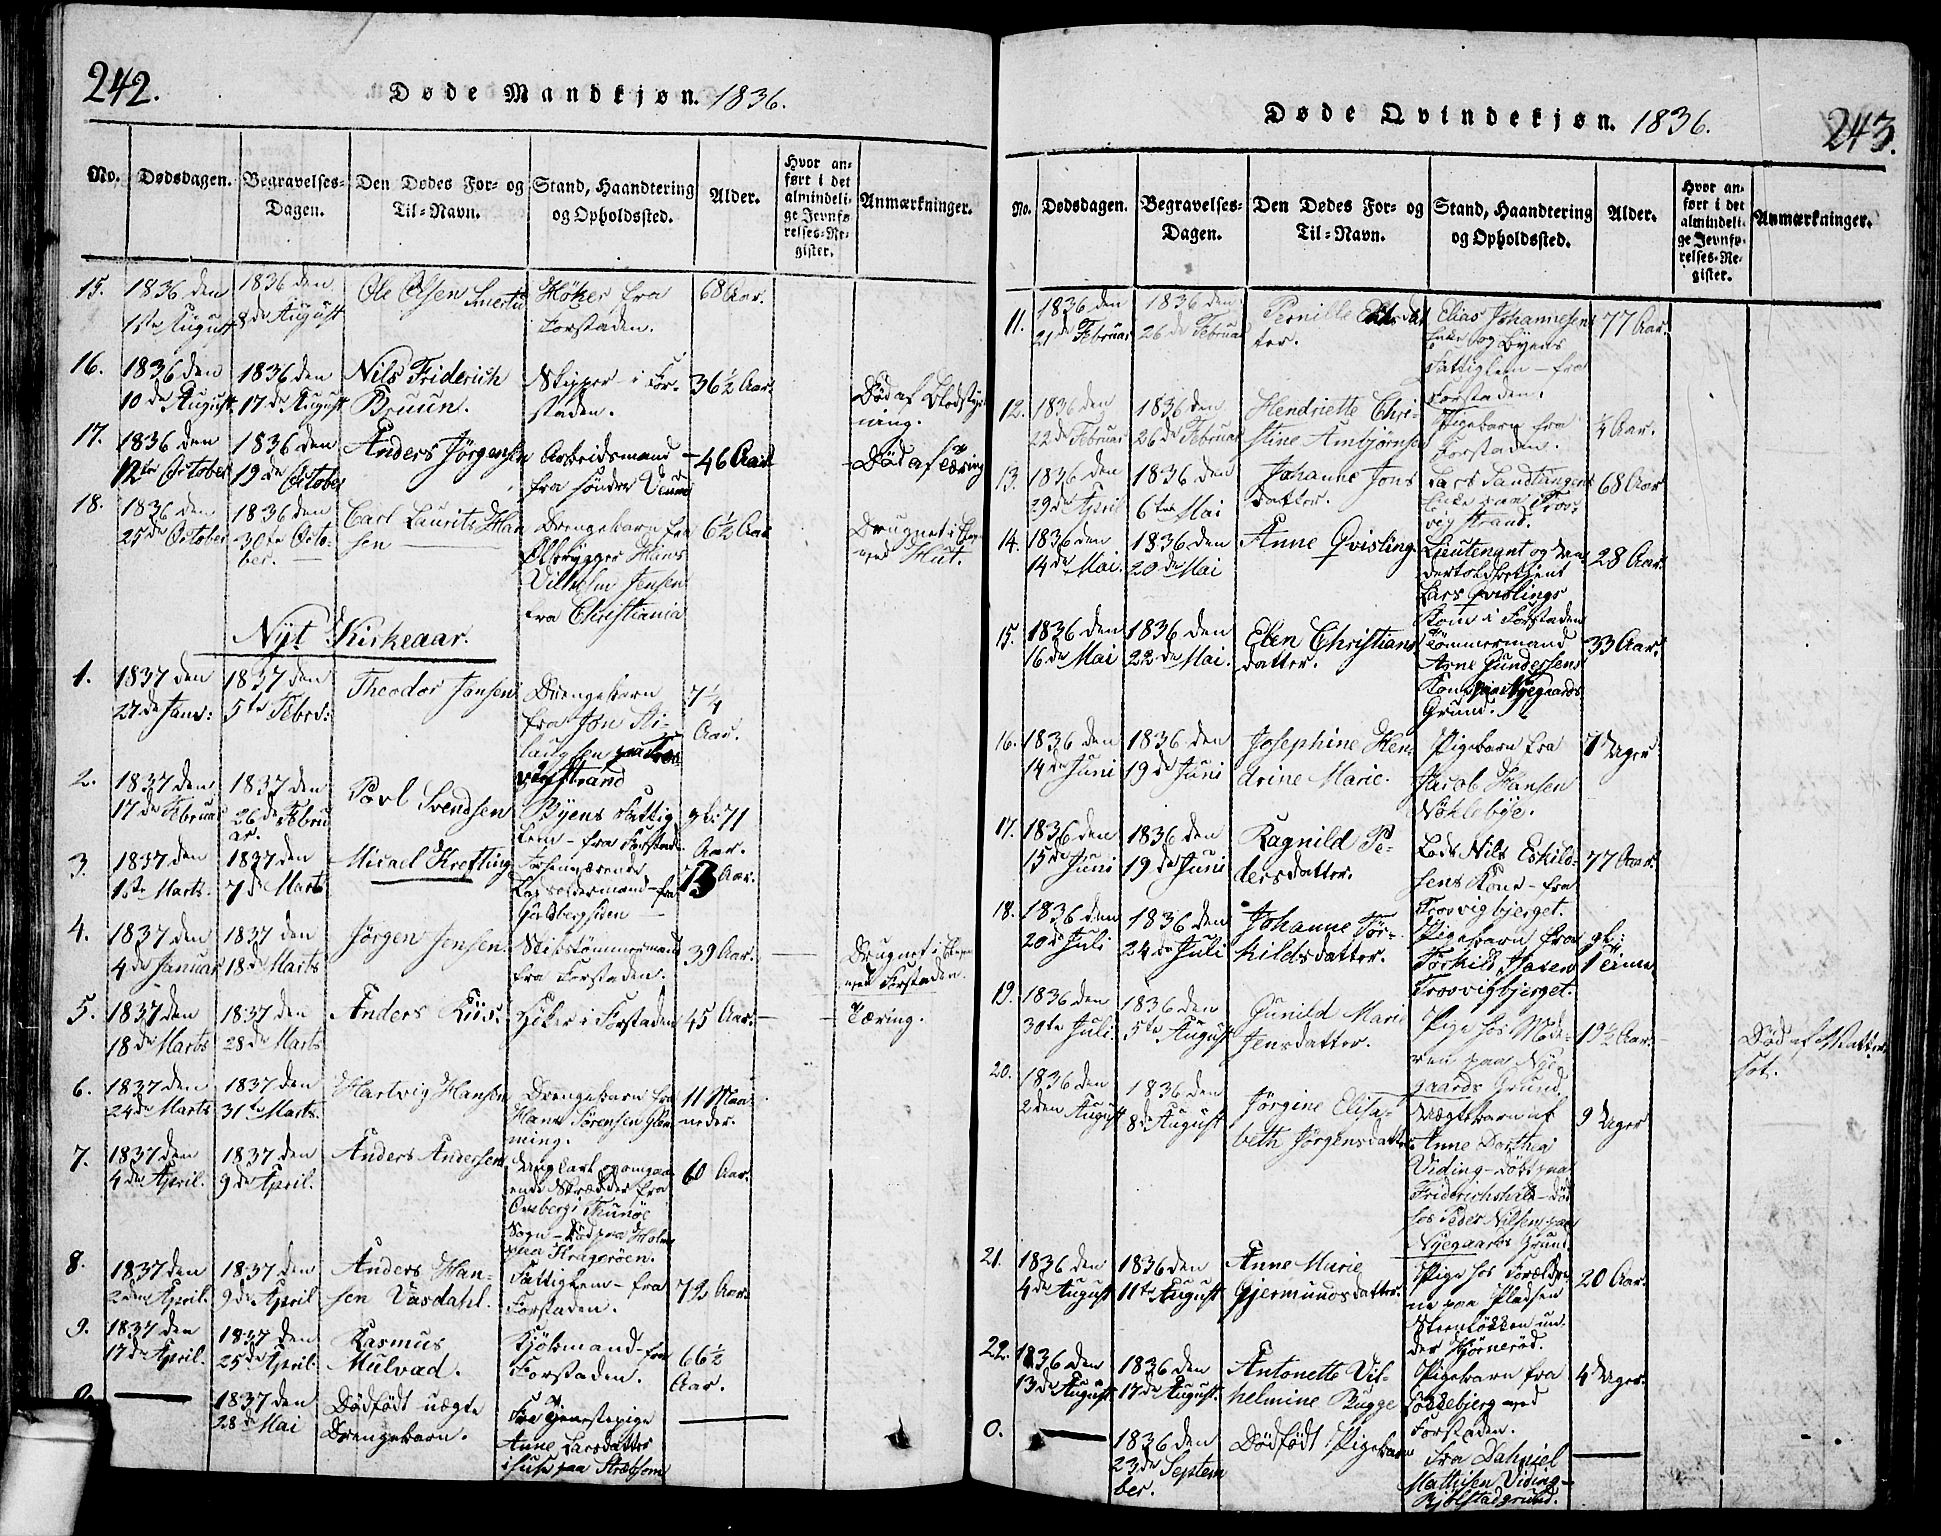 242.
Døde Mandkjøn. 1836.
No. Dødsdagen. Begravelses-Dagen. Den Dødes For- og Til-Navn. Stand, Haandtering og Opholdssted. Alder. Hvor anført i det almindelige Jevnførelses-Register. Anmærkninger.
15. 1836 den 1ste August 1836 den 8de August Ole Olsen Høker fra Forstaden. 68 Aar.
16. 1836 den 10de August. 1836 den 17de August Nils Friderich Bruun. Skipper i Forstaden. 36½ Aar. Død af
17. 1836 den 12te October 1836 den 19de October Anders Jörgensen Arbeidsmand fra søndre 46 Aar Død af Tæring
18. 1836 den 25de October 1836 den 30te October. Carl Laurits Hansen Drengebarn fra Ølbrygger Hans Vilhelm Jensen fra Christiania 6½ Aar
Nyt Kirkeaar.
1. 1837 den 27de Janr: 1837 den 5te Febr: Theodor Jansen Drengebarn fra Jon 7¼ Aar.
2. 1837 den 17de Februar 1837 den 26de Februar. Povl Svendsen Byens Fattiglem - fra Forstad. 71 Aar.
3. 1837 den 1ste Marts. 1837 den 7de Marts Micael Krefting 73 Aar.
4. 1837 den 4de Januar 1837 den 18de Marts Jörgen Jensen. Skibstømmermand fra Forstaden. 39 Aar. ved Forstaden.
5. 1837 den 18de Marts 1837 den 28de Marts Anders Kiis. Høker i Forstaden 45 Aar. Tæring.
6. 1837 den 24de Marts 1837 den 31te Marts. Hartvig Hansen Drengebarn fra Hans Sörensen Glemming. 11 Maaneder.
7. 1837 den 4de April. 1837 den 9de April. Anders Andersen omgaaende Skrædder fra Sogn - Død paa Holm paa Kragerøen. 60 Aar.
8. 1837 den 2den April. 1837 den 9de April Anders Hansen Vasdahl. Fattiglem - fra Forstaden. 79 Aar.
9. 1837 den 17de April. 1837 den 25de April. Rasmus Mulvad. Kjøbmand - fra Forstaden. 66½ Aar.
0. 1837 den 28de Mai Dødfødt uægte Drengebarn. Fra Tjenestepige Anne Larsdatter
243.
Døde Qvindekjøn. 1836.
No. Dødsdagen. Begravelses-Dagen. Den Dødes For- og Til-Navn. Stand, Haandtering og Opholdssted. Alder. Hvor anført i det almindelige Jevnførelses-Register. Anmærkninger.
11. 1836 den 21de Februar 1836 den 26de Februar Pernille Elias Johannesens Enke og Byens Fattiglem - fra Forstaden. 77 Aar.
12. 1836 den 22de Februar 1836 den 26de Februar Hendriette Christine Ambjørnsen Pigebarn fra Forstaden. ¼ Aar.
13. 1836 den 29de April 1836 den 6te Mai Johanne Jonsdatter. Lars 68 Aar
14. 1836 den 14de Mai. 1836 den 20de Mai Anne Qvisling Lieutenant og Undertoldbetjent Lars Qvislings Kone i Forstaden 28 Aar.
15. 1836 den 16de Mai 1836 den 22de Mai. Elen Christiansdatter. Tömmermand Arne Gundersens Kone paa Nyegaards Grund. 33 Aar.
16. 1836 den 14de Juni 1836 den 19de Juni Josephine Hendrine Marie. Pigebarn fra Jacob Hansen Nöklebye. 7 Uger
17. 1836 den 15de Juni 1836 den 19de Juni Ragnild Pedersdatter. Lods Nils Eskildsens Kone - fra Trosvigbjerget. 77 Aar.
18. 1836 den 20de Juli 1836 den 24de Juli Johanne Törkildsdatter. Pigebarn fra Torkild Trosvigbjerget. 1 Time.
19. 1836 den 30te Juli. 1836 den 5te August Gunild Marie Jensdatter. Pige hos Moderen paa Nyegaards Grund 19½ Aar. Død af
20. 1836 den 2den August 1836 den 8de August Jörgine Elisabeth Jörgensdatter Uægtebarn af Anne Dorthea Viding - født paa Friderichshald - død hos Peder Nilsen paa Nyegaards Grund. 9 Uger
21. 1836 den 4de August 1836 den 11te August Anne Marie Gjermundsdatter. Pige hos Forældrene paa Pladsen under Hjörneröd. 20 Aar.
22. 1836 den 13de August 1836 den 17de August. Antonette Vilhelmine Bugge Pigebarn fra ved Forstaden. 4 Uger.
0. 1836 den 23de September. Dødfødt Pigebarn fra Dahniel Mathisen Viding -